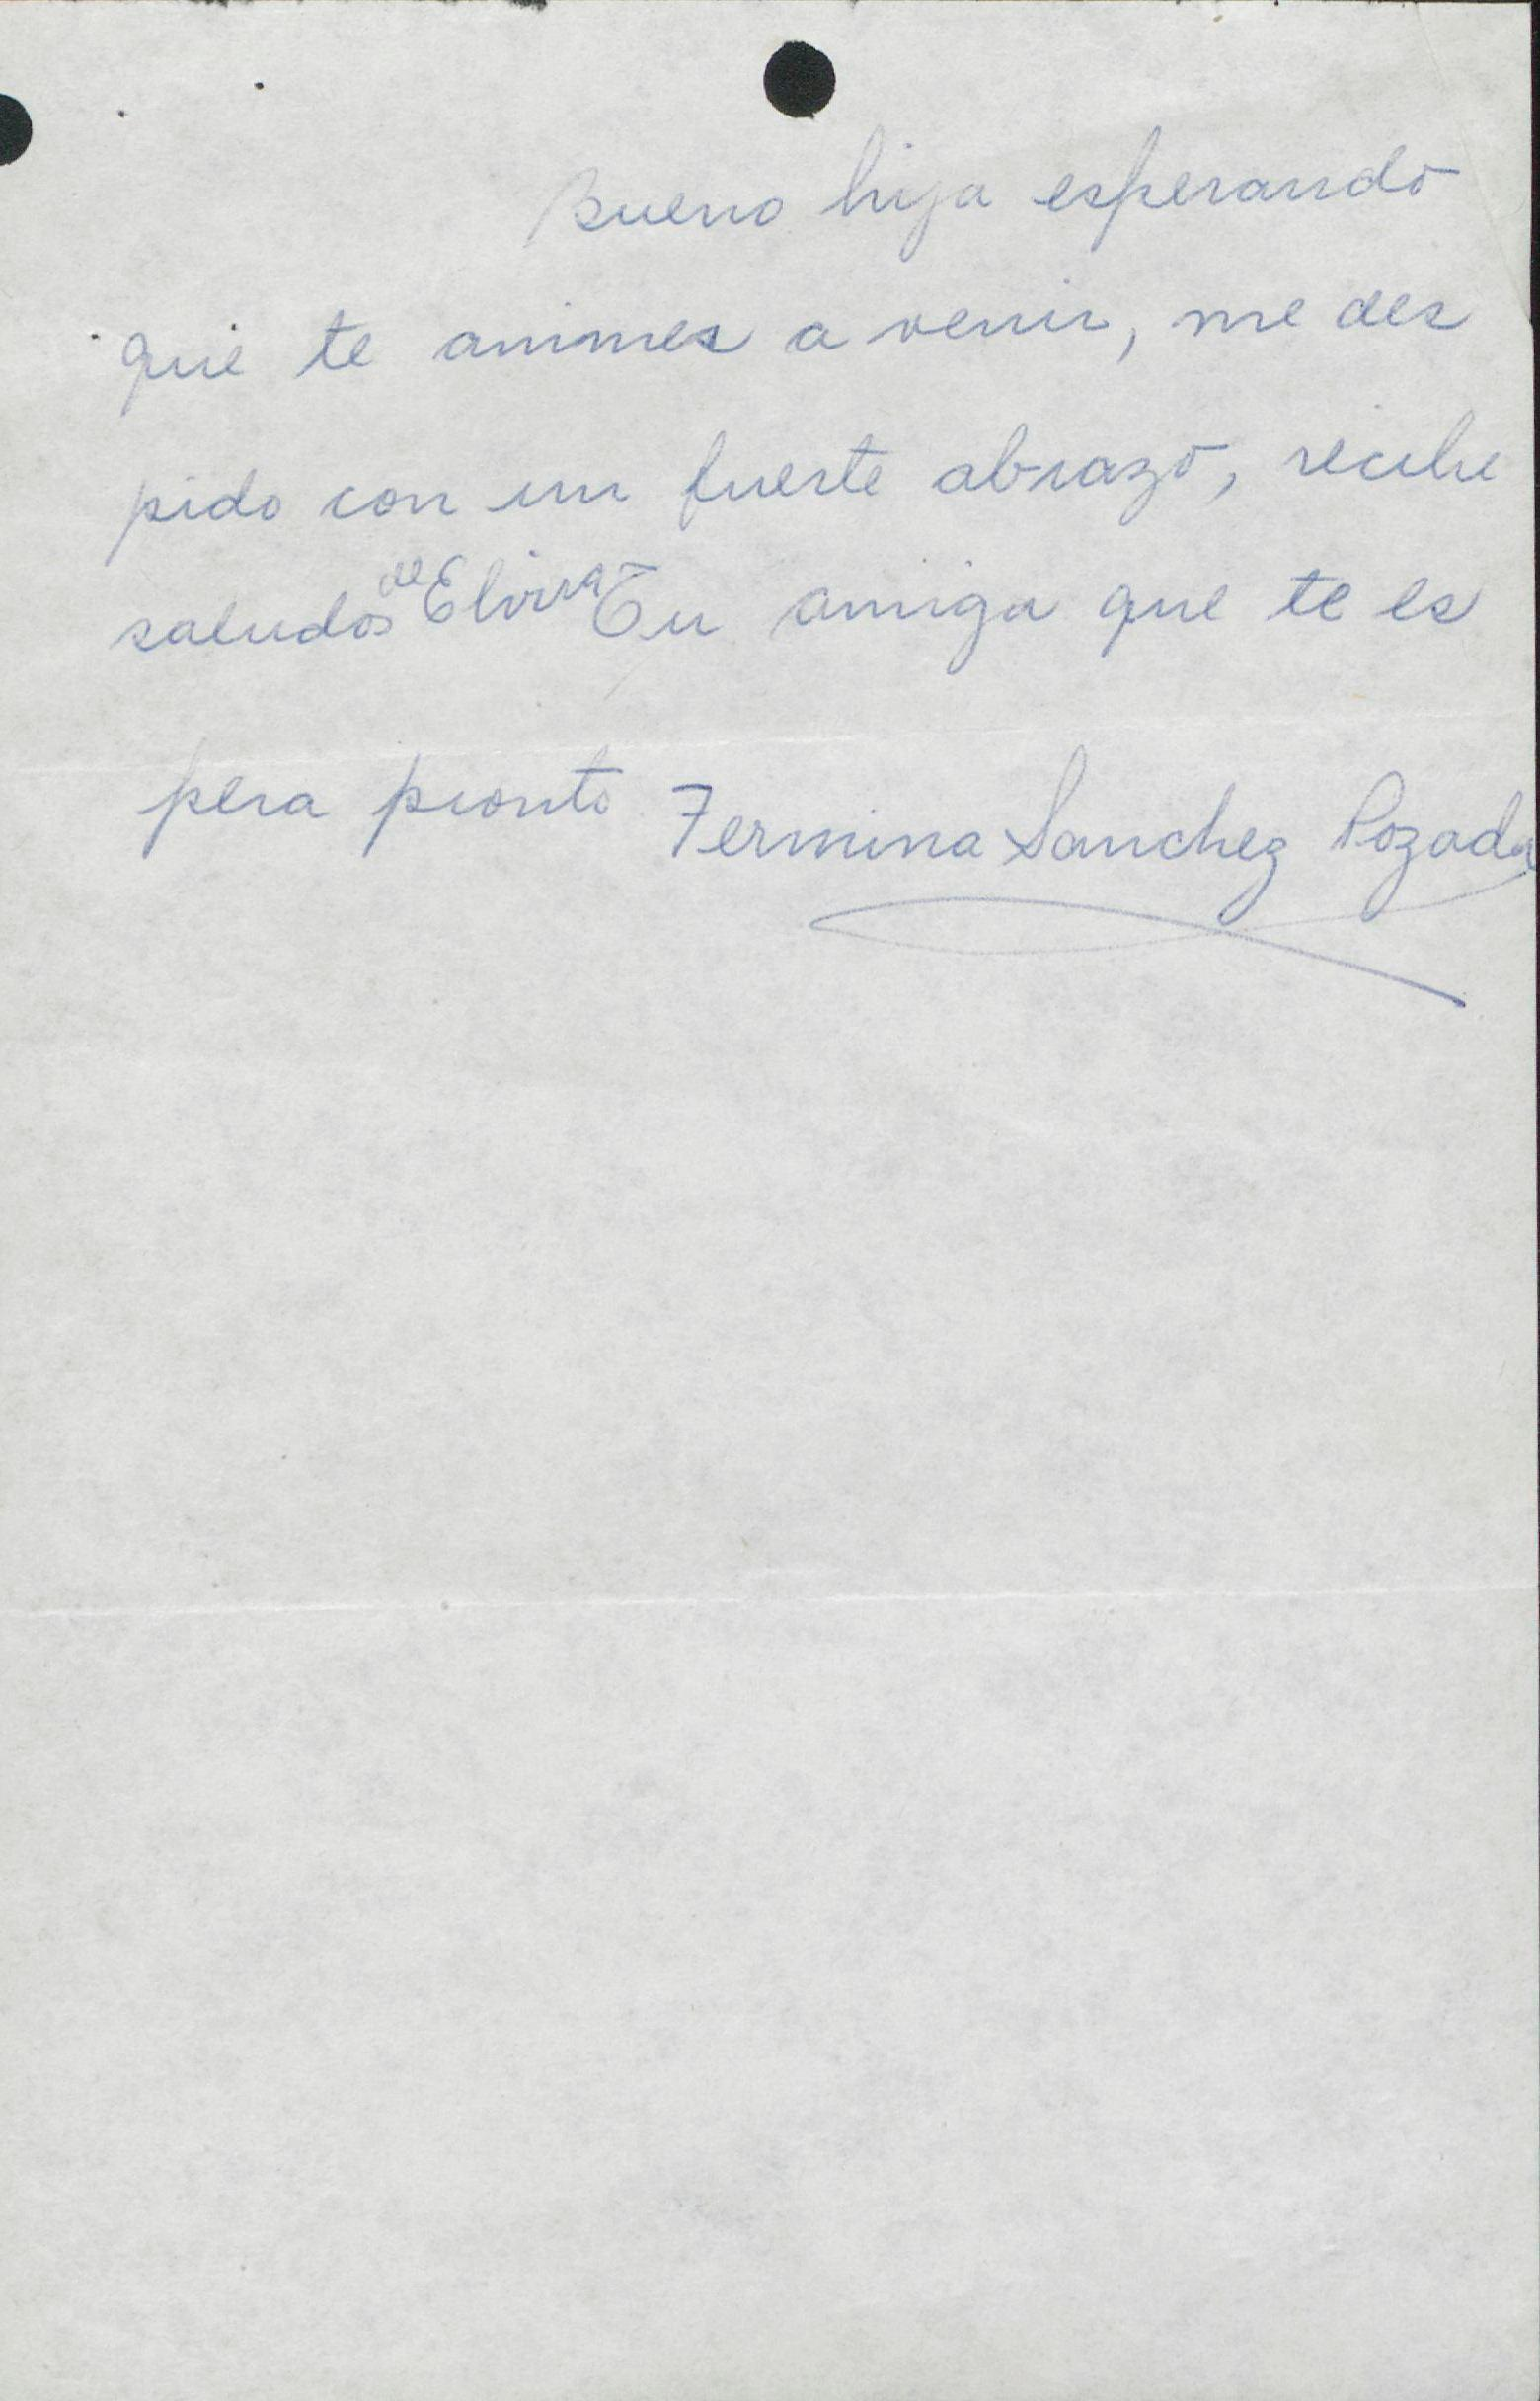 Bueno hija esperando
que te animes a venir, me des
pido con un fuerte abrazo, recibe
saludos de Elvira Tu amiga que te es
pera pronto Fermina Sanchez Pozada